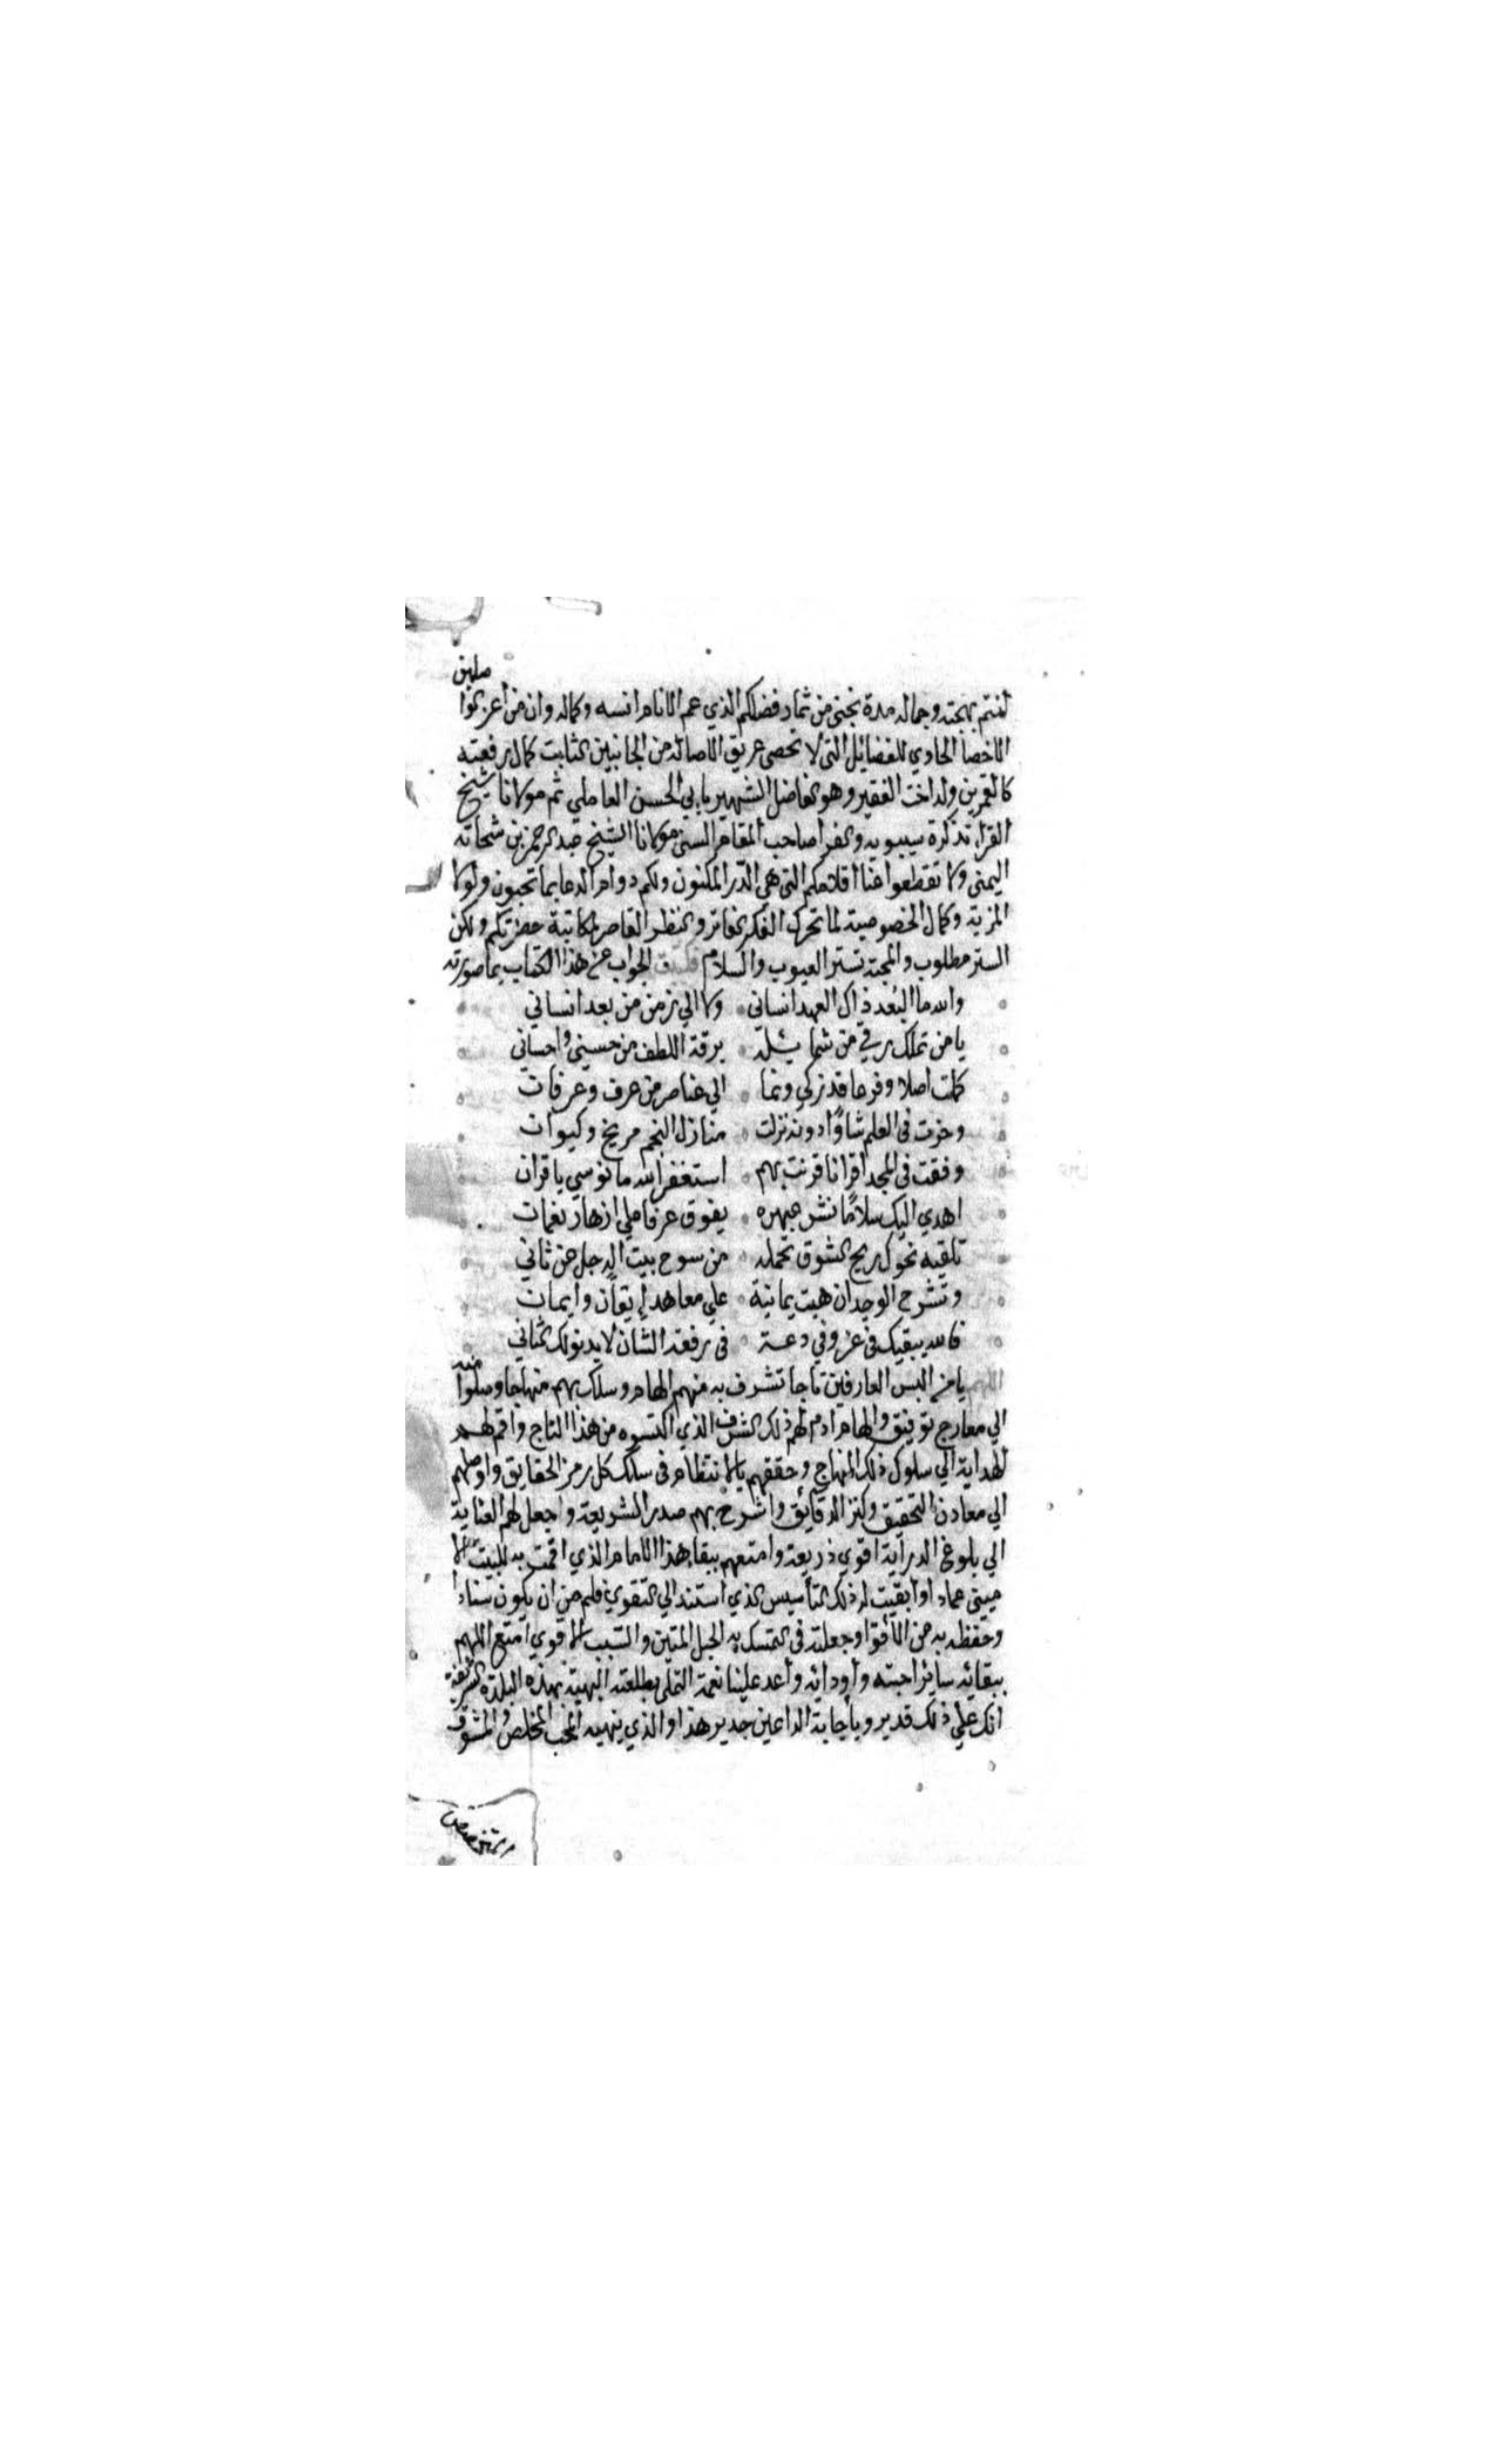 لنتم بهجته وجماله مدة نجتني من ثمار فضلكم الذي عم الانام انسه وكماله وان من اعز
الاخصا الحاوي للفضايل التي لا تحصى عريق الاصالة من الجانبين الثابت كمال رفعته
كالقمرين ولد اخت الفقير وهو الفاضل الشهير بابي الحسن العاملي ثم مولانا شيخ
القراء تذكرة سيبويه والفرا صاحب المقام السني مولانا الشيخ عبد الرحمن بن شحاته
اليمني ولا تقطعوا عنا اقلامكم التي هي الدر المكنون ولكم دوام الدعا بما تحبون ولولا
المزية وكمال الخصوصية لما تحرك الفكر الفاتر والنظر القاصر لمكاتبة حضرتكم ولكن
الستر مطلوب والمحبة تستر العيوب والسلام الجواب عن هذا الكتاب بما صورته
والله ما البعد ذاك العهد انساني ولا الي زمن من بعد انساني
يا من تملك رقي من شمايله برقة اللطف من حسني واحساني
كملت اصلا وفرعا قد زكي ونما الي عناصر من عرف وعرفان
وحزت في العلم شأوا دونه نزلت منازل النجم مريخ وكيوان
وفقت في المجد اقرانا قرنت بهم استغفر الله ما نوسي باقران
اهدي اليك سلاما نشر عبهره يفوق عرفا علي ازهار نعمان
تلقيه نحوك ريح الشوق تحمله من سوح بيت اله جل عن ثاني
وتشرح الوجد ان هبت يمانية علي معاهد ايقان وايمان
فالله يبقيك في عز وفي دعة في رفعة الشان لا يدنو لك الثاني
اللهم يا من البس العارفين تاجا تشرف به منهم الهام وسلك بهم منهاجا وصلوا منه
الي معارج توفيق والهام ادم لهم ذلك الشرف الذي اكتسوه من هذا التاج واقم لهم
الهداية الي سلوك ذلك المنهاج وحققهم بالانتظام في سلك كل رمز الحقايق واوصلهم
الي معادن التحقيق وكنز الدقائق واشرح بهم صدر الشريعة واجعل لهم العناية
الي بلوغ الدراية اقوي ذريعة وامتعهم ببقا هذا الامام الذي اقمت به للبيت
عمادا وابقيت له ذلك التأسيس الذي استند الي التقوي فلم من ان يكون سنادا
وحفظه به من الاقوا وجعلته في التمسك به الحبل المتين والسبب الاقوي امتع اللهم
ببقائه ساير احبته واودائه واعد علينا نعمة التملي بطلعته البهية بهذه البلدة الشريفة
انك علي ذلك قدير وباجابة الداعين جدير هذا والذي ينهيه المحب المخلص والمشوق